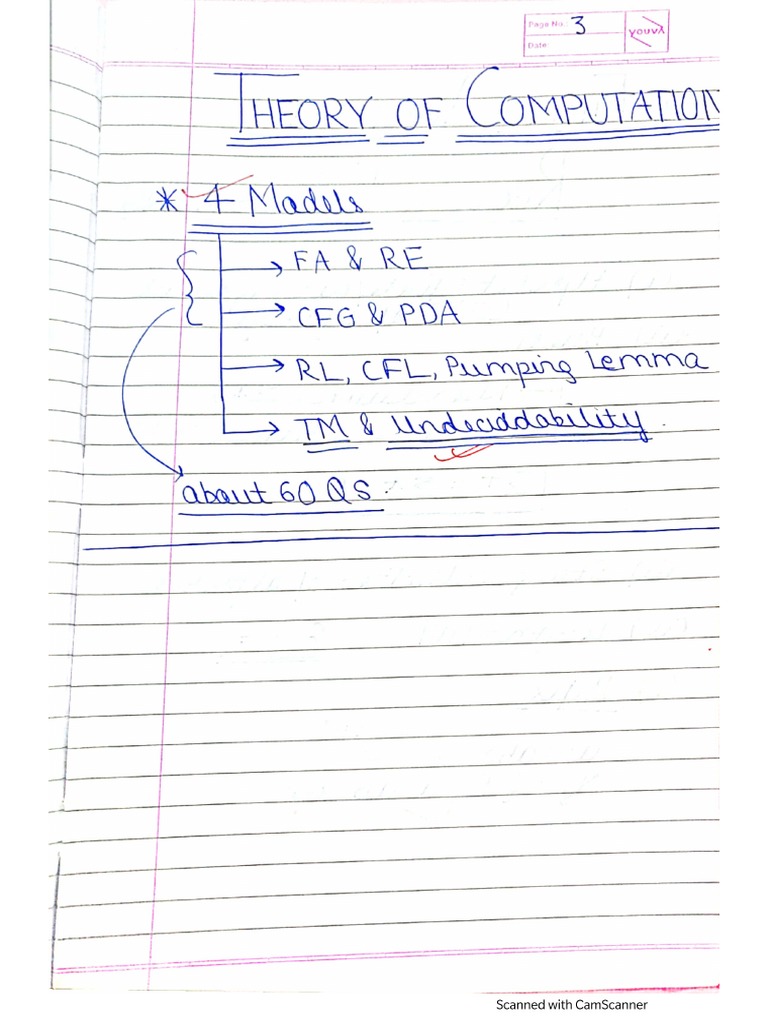 Page No. 3
Date
YOUVA
THEORY OF COMPUTATION
* 4 Madels
→ FA & RE
→ CFG & PDA
→ RL, CFL, Pumping Lemma
→ TM & Undeciddability.
about 60 QS.
Scanned with CamScanner